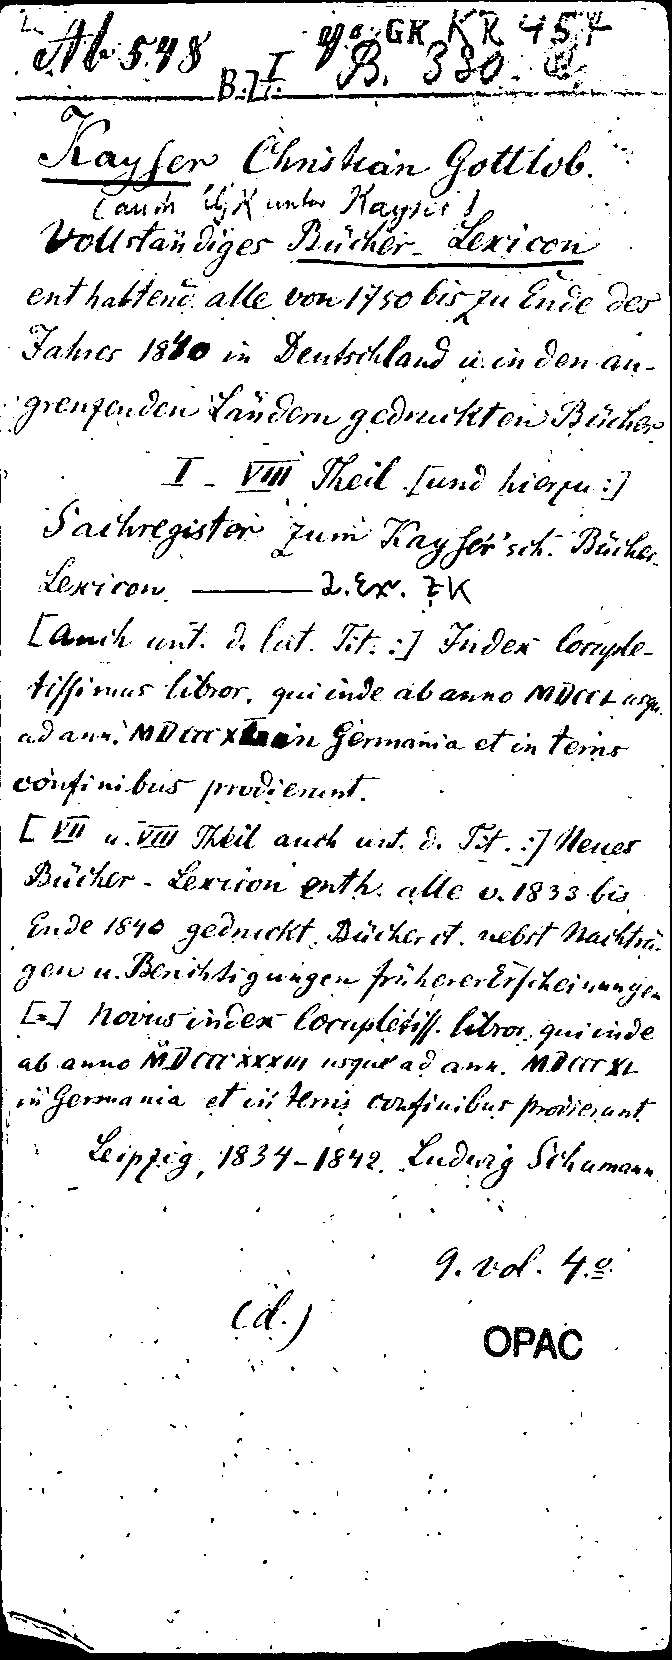 Ab 548 GK KR 457
B. I B. 330.
Kayser Christian Gottlob.
(auch unter Kayser)
Vollständiges Bücher-Lexicon
enthaltend alle von 1750 bis zu Ende des
Jahres 1840 in Deutschland u. in den an-
grenzenden Ländern gedruckten Bücher
I - VIII Theil [und hierzu:]
Sachregister zum Kayser'sch. Bücher-
Lexicon. ——— 2. Ex. ZK
[auch unt. d. lat. Tit.:] Index locuple-
tissimus libror. qui inde ab anno MDCCL usqu.
ad ann. MDCCCXL in Germania et in terris
confinibus prodierunt.
[VII u. VIII Theil auch unt. d. Tit.:] Neues
Bücher-Lexicon enth. alle v. 1833 bis
Ende 1840 gedruckt. Bücher et. nebst Nachträ-
gen u. Berichtigungen früherer Erscheinungen
[=] Novus index locupletiss. libror. qui inde
ab anno MDCCCXXXIII usque ad ann. MDCCCXL
in Germania et in terris confinibus prodierunt
Leipzig, 1834-1842. Ludwig Schumann
9. vol. 4.º
(d.)
OPAC